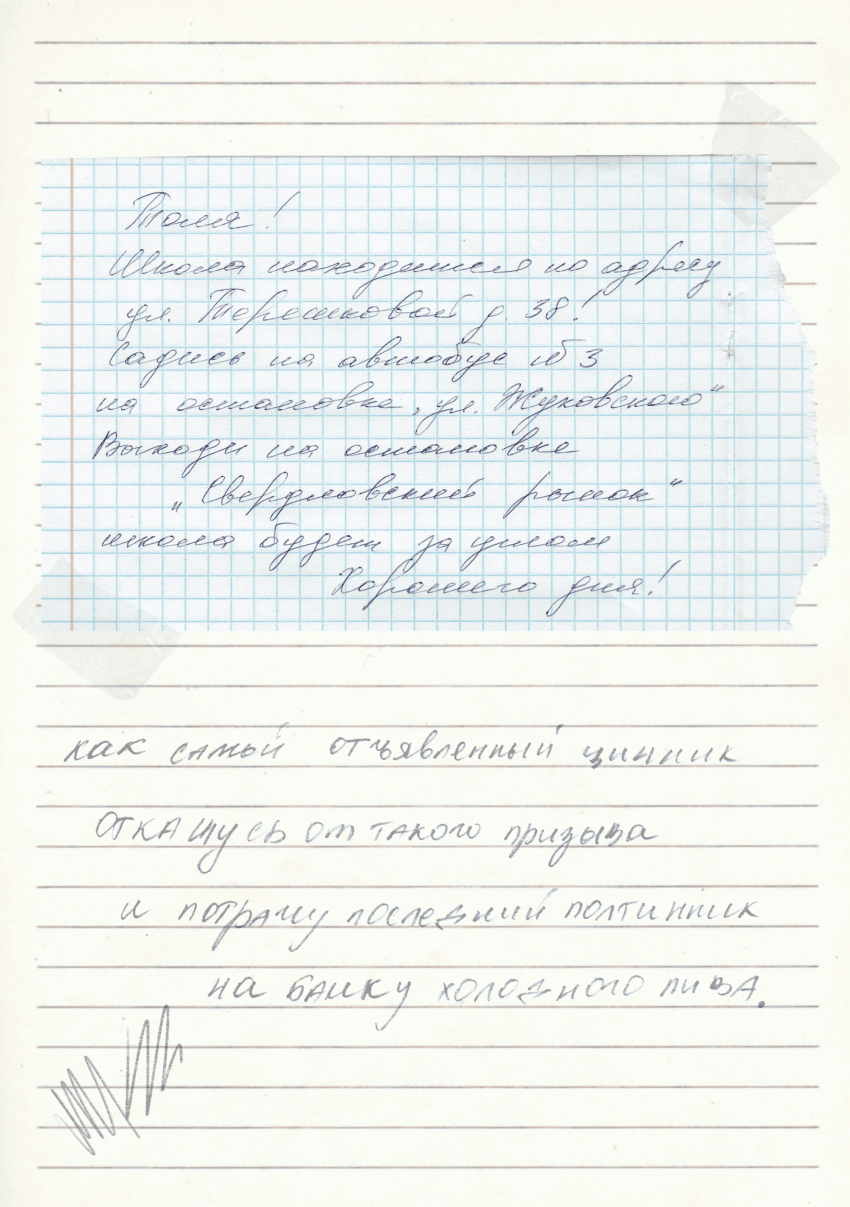 Толя!
Школа находится по адресу
ул. Терешковой д. 38!
Садись на автобус №3
на остановке „ул. Жуковского“
Выходи на остановке
„Свердловский рынок“
школа будет за углом
Хорошего дня!
как самый отъявленный цинник
откащусь от такого призыва
и потрачу последний полтинник
на банку холодного пива.